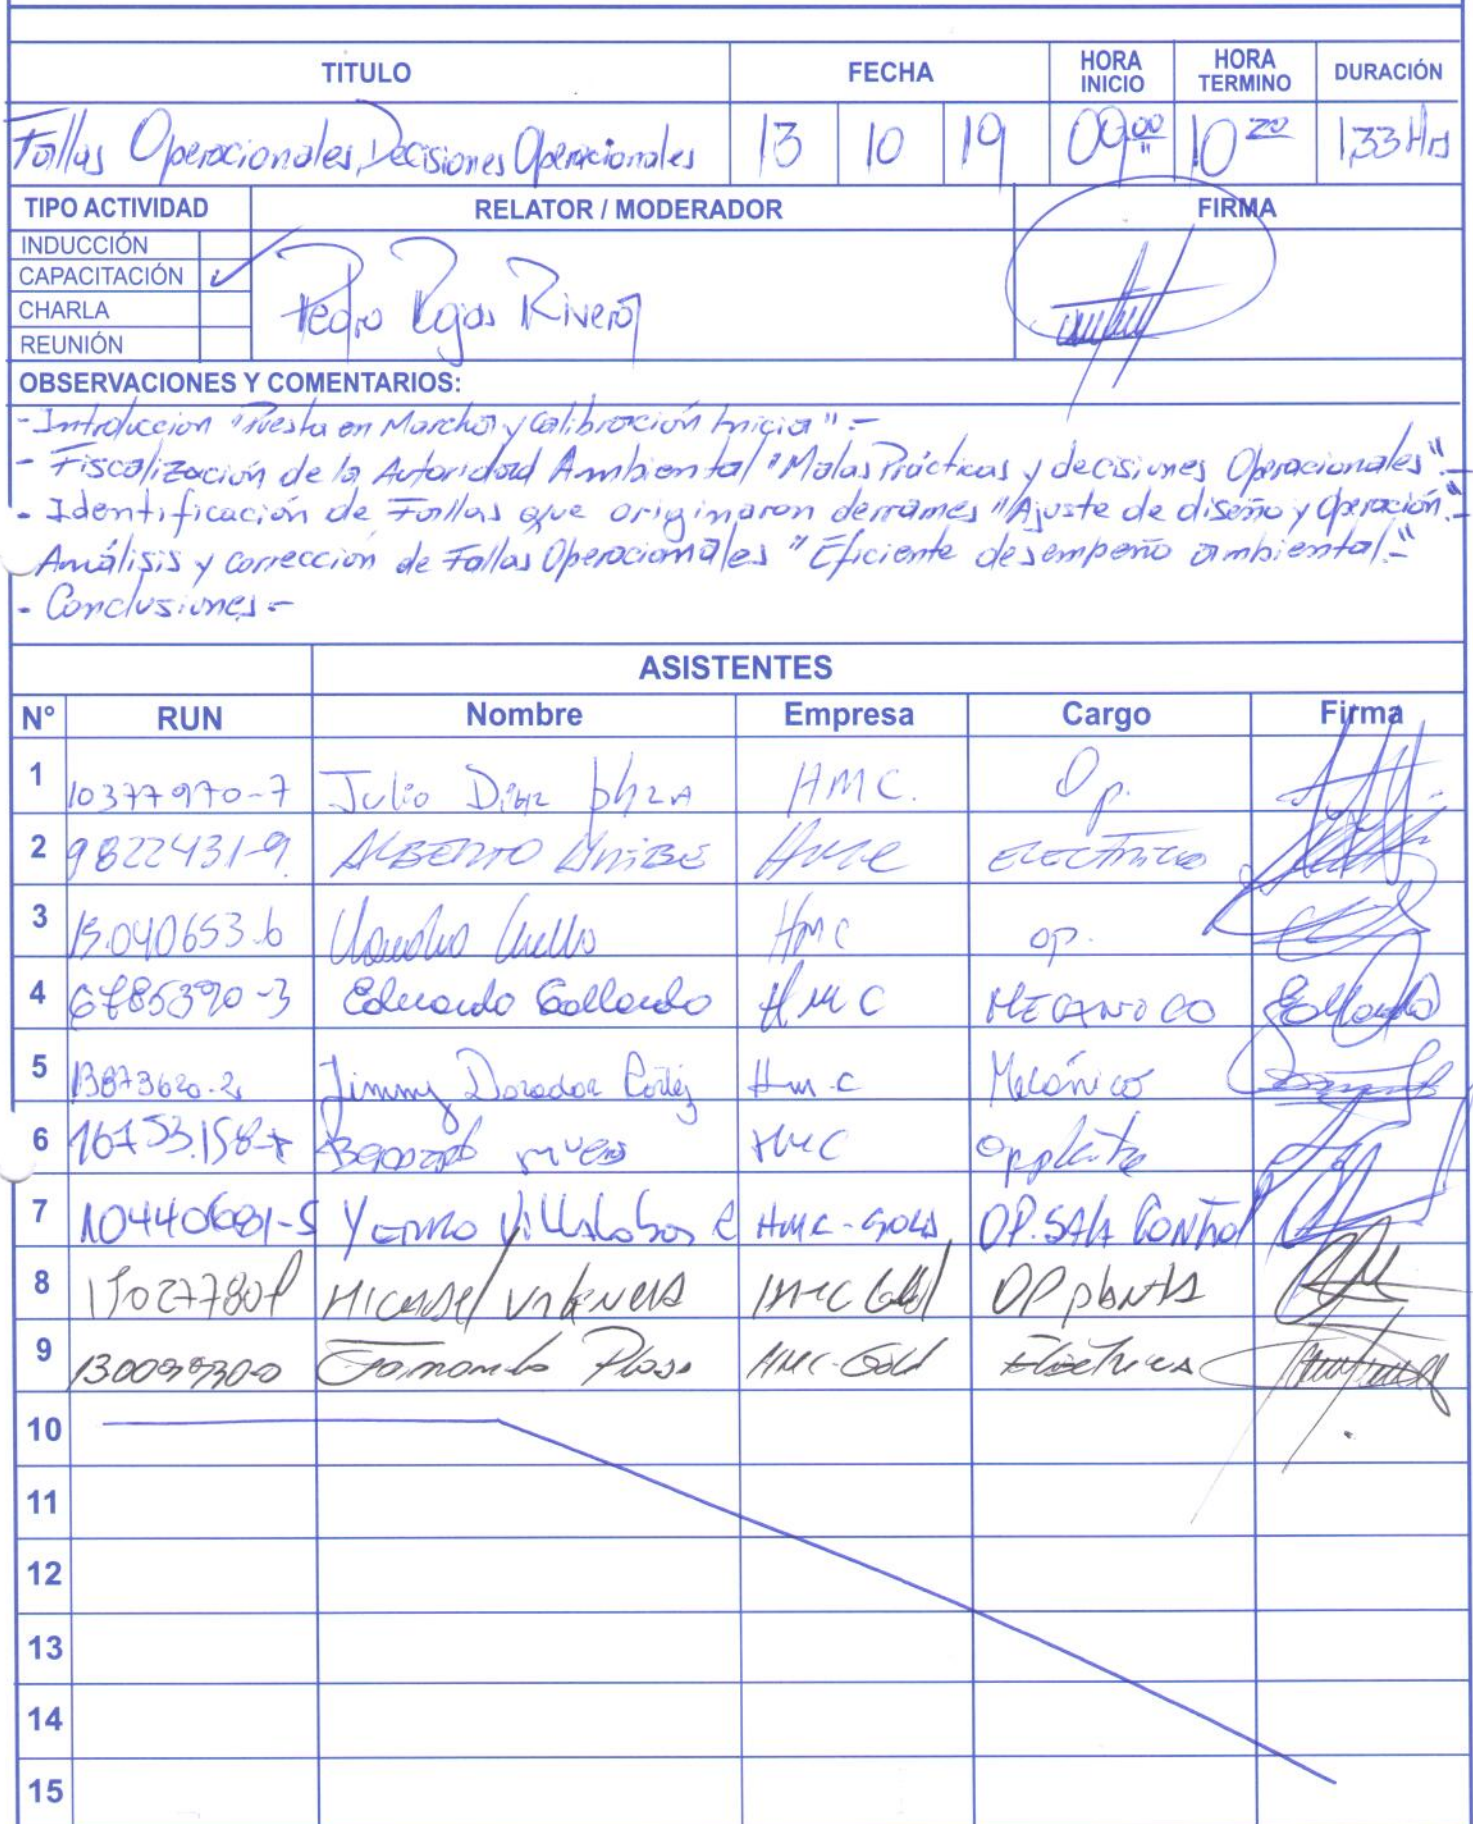 TITULO FECHA HORA INICIO HORA TERMINO DURACIÓN
Fallas Operacionales, Decisiones Operacionales 13 10 19 09:00 10 20 1,33 Hrs
TIPO ACTIVIDAD RELATOR / MODERADOR FIRMA
INDUCCIÓN
CAPACITACIÓN ✓ Pedro Rojas Rivera
CHARLA
REUNIÓN
OBSERVACIONES Y COMENTARIOS:
- Introduccion "Puesta en Marcha y Calibración Inicial".-
- Fiscalización de la Autoridad Ambiental "Malas Prácticas y decisiones Operacionales".-
- Identificación de Fallas que originaron derrames "Ajuste de diseño y Operación".-
Análisis y corrección de Fallas Operacionales "Eficiente desempeño ambiental".-
- Conclusiones.-
ASISTENTES
N° RUN Nombre Empresa Cargo Firma
1 10377970-7 Julio Diaz HMC. Op.
2 9822431-9 ALBERTO HMC ELECTRICO
3 15.040653-6 Claudio HMC op.
4 6785390-3 Eduardo Gallardo HMC MECANICO Gallardo
5 13873620-2 Jimmy Dorador Cortéz HMC Mecánico
6 HMC Op planta
7 10440681-5 Villalobos HMC-Gold OP. SALA Control
8 HMC Gold OP planta
9 Fernando HMC-Gold
10
11
12
13
14
15